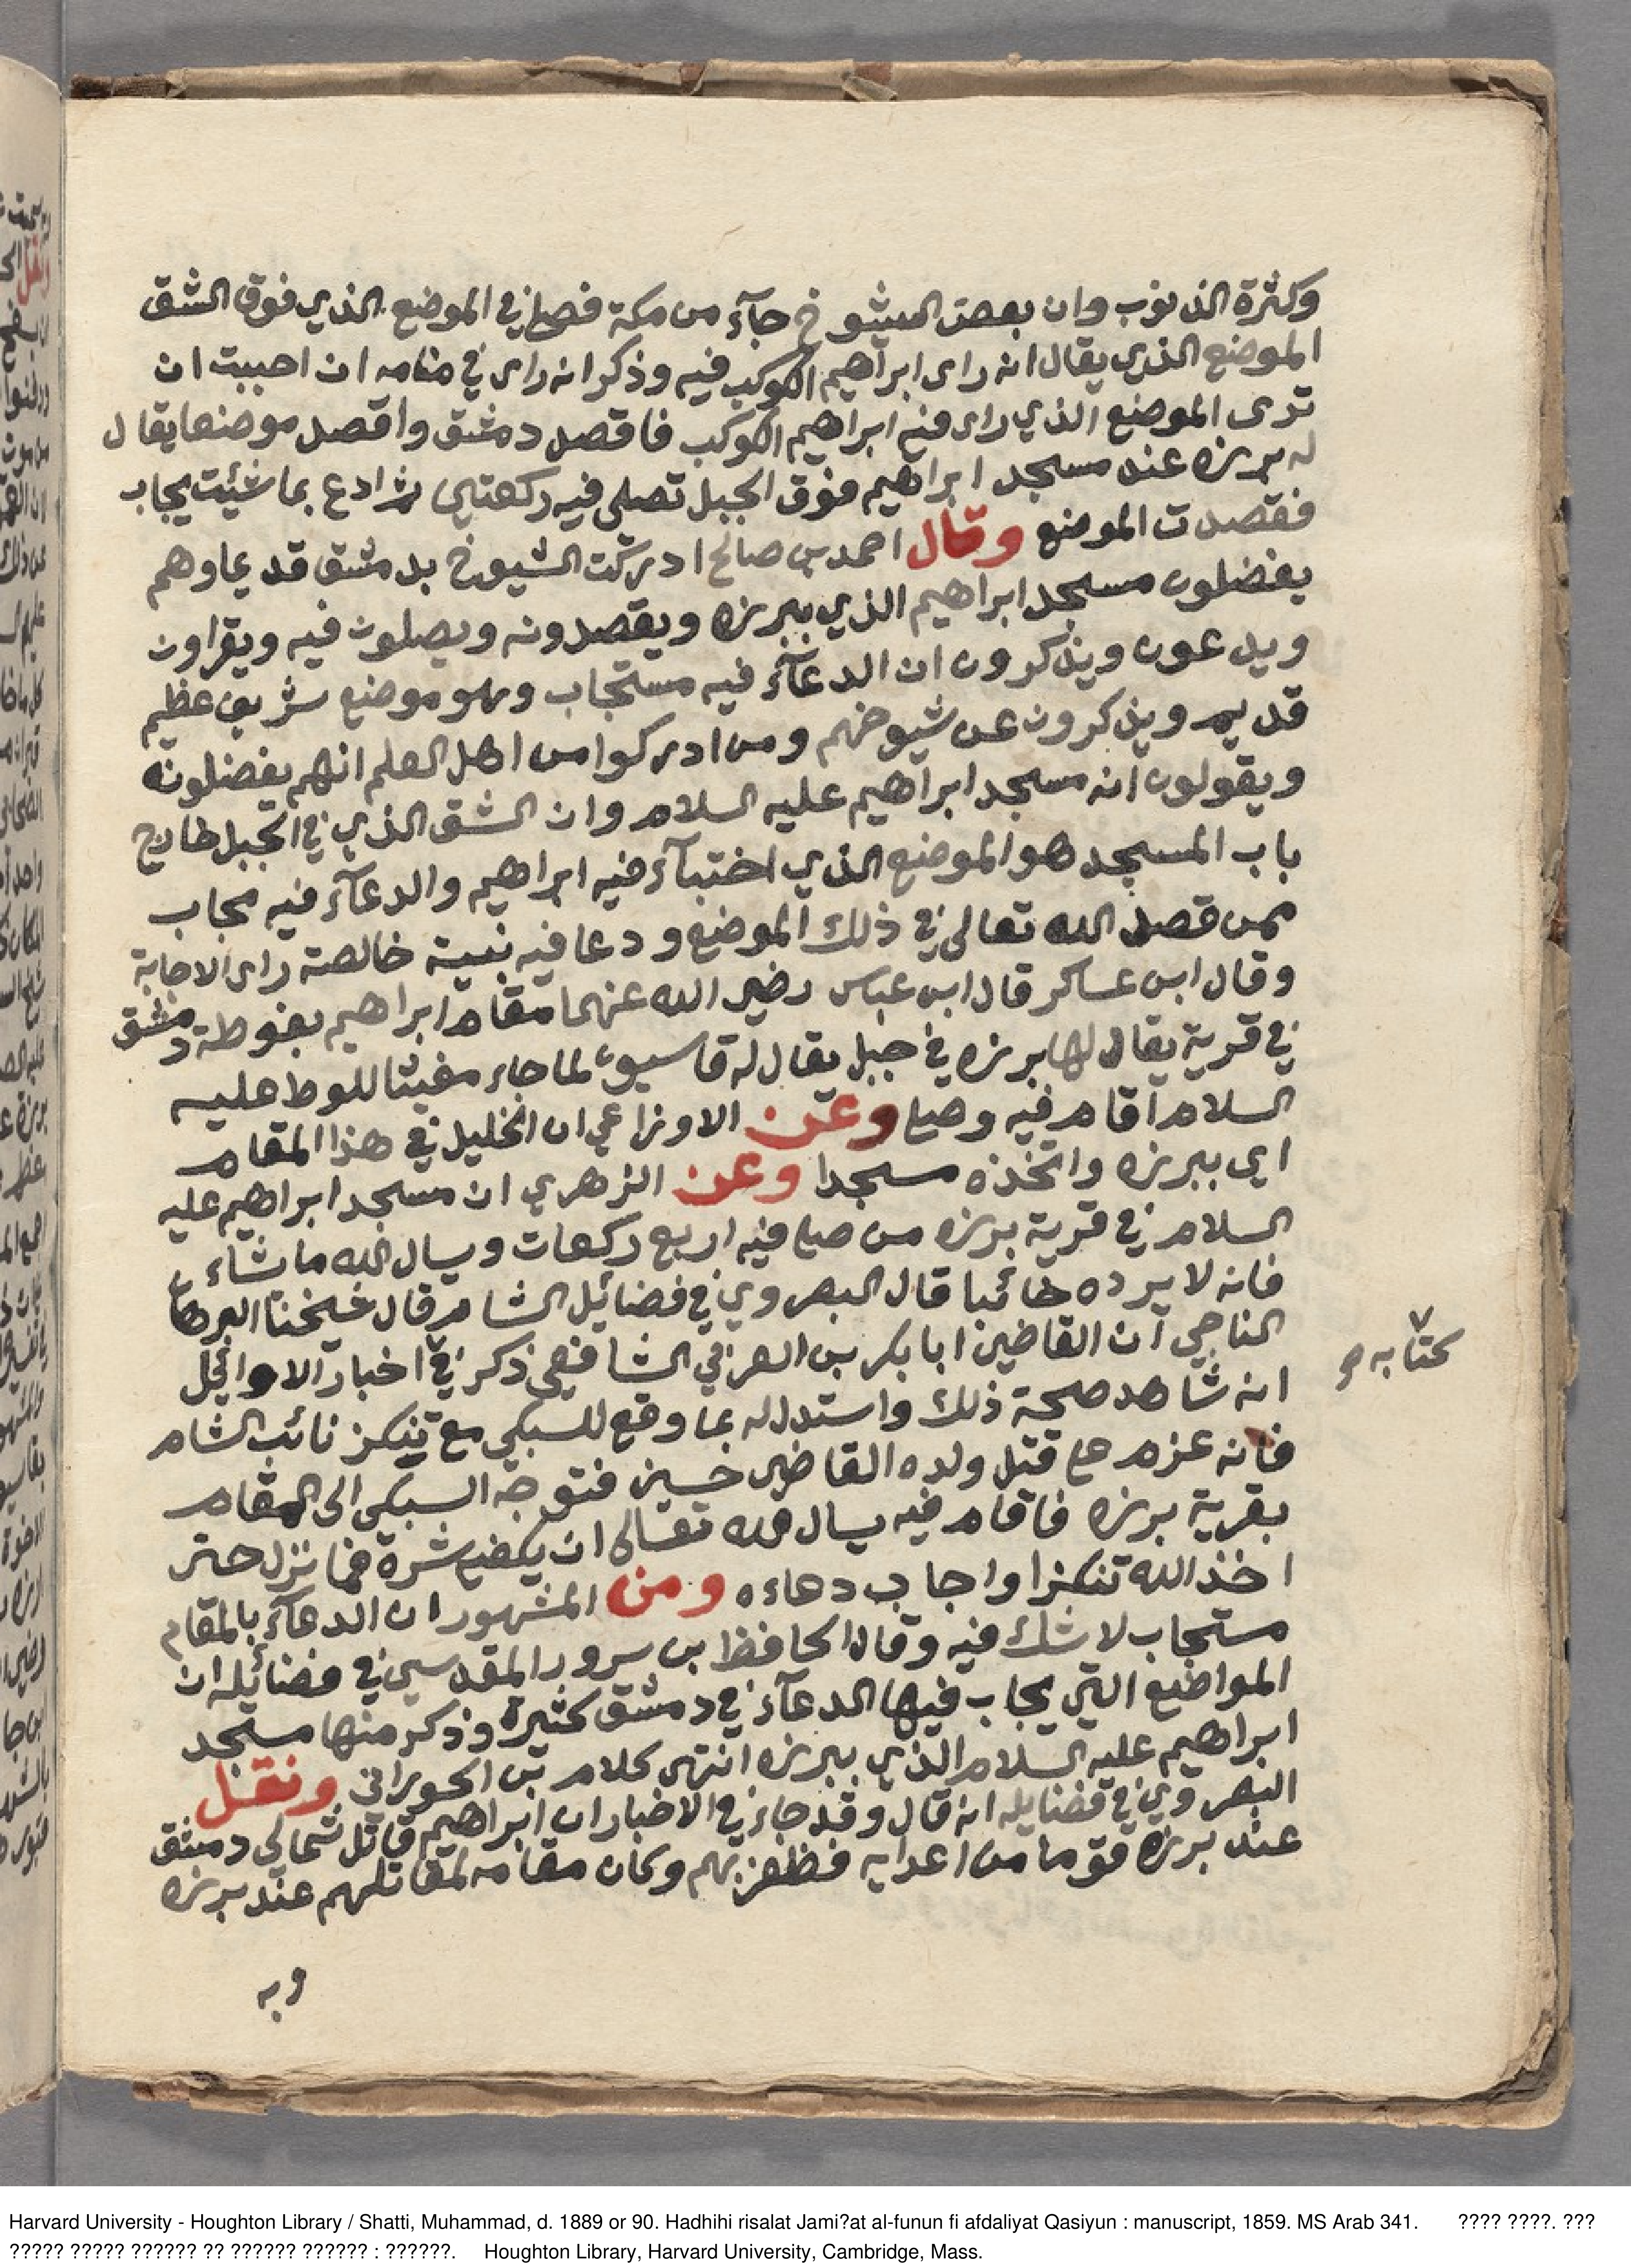 وكثرة الذنوب وان بعض الشيوخ جآء من مكة فصلى في الموضع الذي فوق الشق
الموضع الذي يقال انه راى ابراهيم الكوكب فيه وذكر انه راى في منامه ان احببت ان
ترى الموضع الذي راى فيه ابراهيم الكوكب فاقصد دمشق واقصد موضعا يقال
له برزه عند مسجد ابراهيم فوق الجبل تصلي فيه ركعتين ثم ادع بما شئت يجاب
فقصدت الموضع وقال احمد بن صالح ادركت الشيوخ بدمشق قديما وهم
يفضلون مسجد ابراهيم الذي ببرزه ويقصدونه ويصلون فيه ويقراون
ويدعون ويذكرون ان الدعآء فيه مستجاب وهو موضع شريف عظيم
قديم ويذكرون عن شيوخهم ومن ادركوا من اهل العلم انهم يفضلونه
ويقولون انه مسجد ابراهيم عليه السلام وان الشق الذي في الجبل خارج
باب المسجد هو الموضع الذي اختبآء فيه ابراهيم والدعآء فيه مجاب
فمن قصد الله تعالى في ذلك الموضع ودعا فيه بنية خالصة راى الاجابة
وقال ابن عساكر قال ابن عباس رضي الله عنهما مقام ابراهيم بغوطة دمشق
في قرية يقال لها برزه في جبل يقال له قاسيون لما جاء مغيثا للوط عليه
السلام اقام فيه وصلى وعن الاوزاعي ان الخليل في هذا المقام
اي ببرزه واتخذه مسجدا وعن الزهري ان مسجد ابراهيم عليه
السلام في قرية برزه من صلى فيه اربع ركعات وسال الله ما شاء
فانه لا يرده خائبا قال البصروي في فضائل الشام قال شيخنا البرهان
الناجي ان القاضي ابا بكر بن العربي الشافعي ذكر في اخبار الاوائل
كتابه
انه شاهد صحة ذلك واستدل له بما وقع للسبكي مع تنكز نائب الشام
فانه عزم على قتل ولده القاضي حسين فتوجه السبكي الى المقام
بقرية برزه فاقام فيه يسال الله تعالى ان يكفيه شره فما نزل حتى
اخذ الله تنكزا واجاب دعاءه ومن المشهور ان الدعآء بالمقام
مستجاب لا شك فيه وقال الحافظ بن سرور المقدسي في فضائله ان
المواضع التي يجاب فيها الدعآء في دمشق كثيرة وذكر منها مسجد
ابراهيم عليه السلام الذي ببرزه انتهى كلام بن الحوراني ونقل
البصروي في فضايله انه قال وقد جاء في الاخبار ان ابراهيم قاتل شمالي دمشق
عند برزه قوما من اعدايه فظفر بهم وكان مقامه لمقاتلهم عند برزه
وبه
Harvard University - Houghton Library / Shatti, Muhammad, d. 1889 or 90. Hadhihi risalat Jami?at al-funun fi afdaliyat Qasiyun : manuscript, 1859. MS Arab 341. ???? ????. ???
????? ????? ?????? ?? ?????? ?????? : ??????. Houghton Library, Harvard University, Cambridge, Mass.